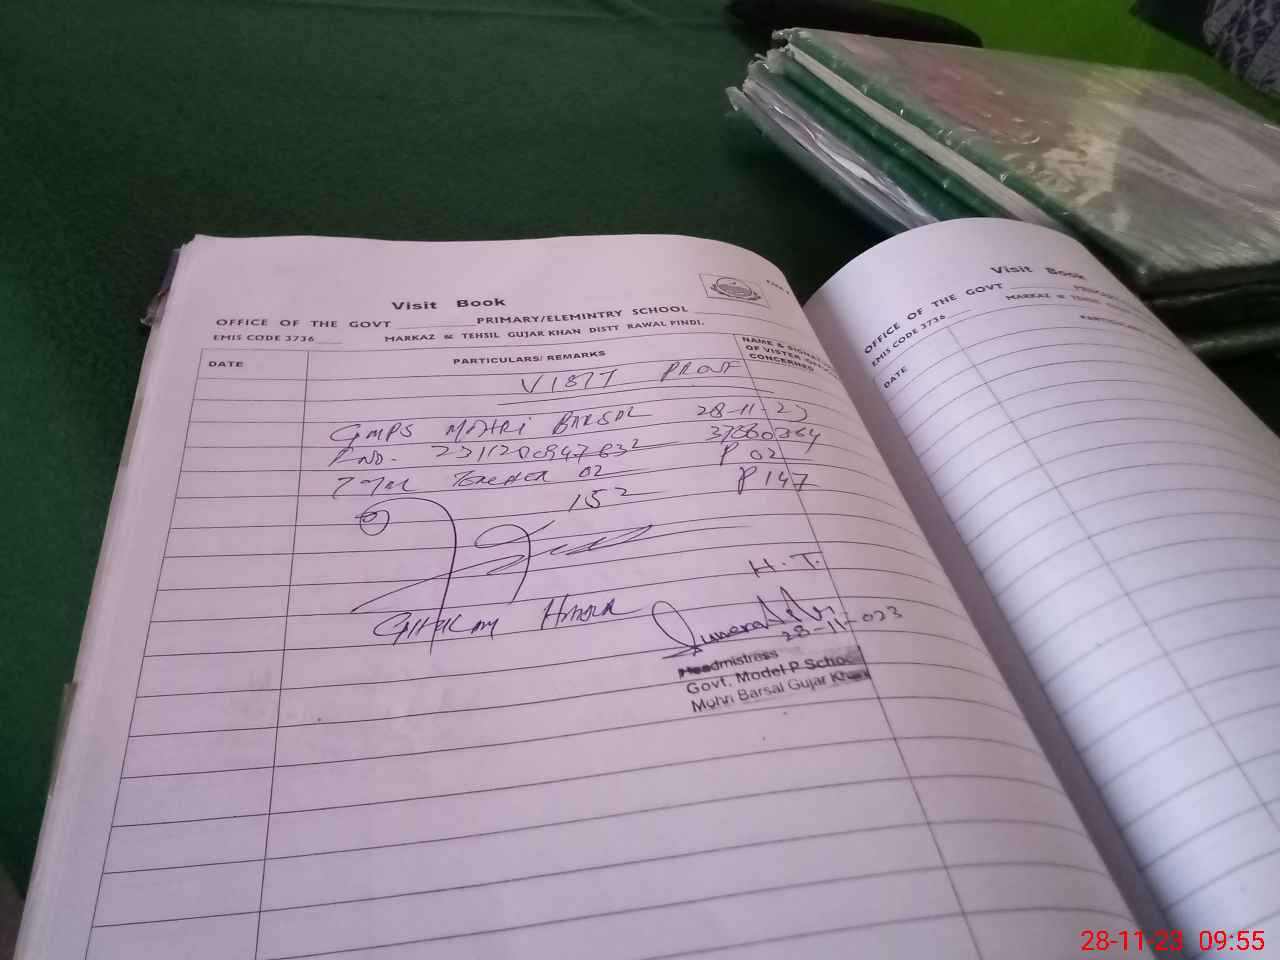 Visit Book
OFFICE OF THE GOVT ______ PRIMARY/ELEMINTRY SCHOOL ______
EMIS CODE 3736 ____ MARKAZ & TEHSIL GUJAR KHAN DISTT RAWAL PINDI.
DATE PARTICULARS/ REMARKS NAME & SIGNATURE OF VISTER CONCERNED
VISIT PROUF
GMPS MOHRI BARSAL 28-11-23
TOTAL TEACHER 02 P 02
152 P 147
H.T.
GHULAM
28-11-023
Headmistress
Govt. Model P School
Mohri Barsal Gujar Khan
Visit Book
OFFICE OF THE GOVT ______
EMIS CODE 3736 ____ MARKAZ & TEHSIL
DATE
28-11-23 09:55